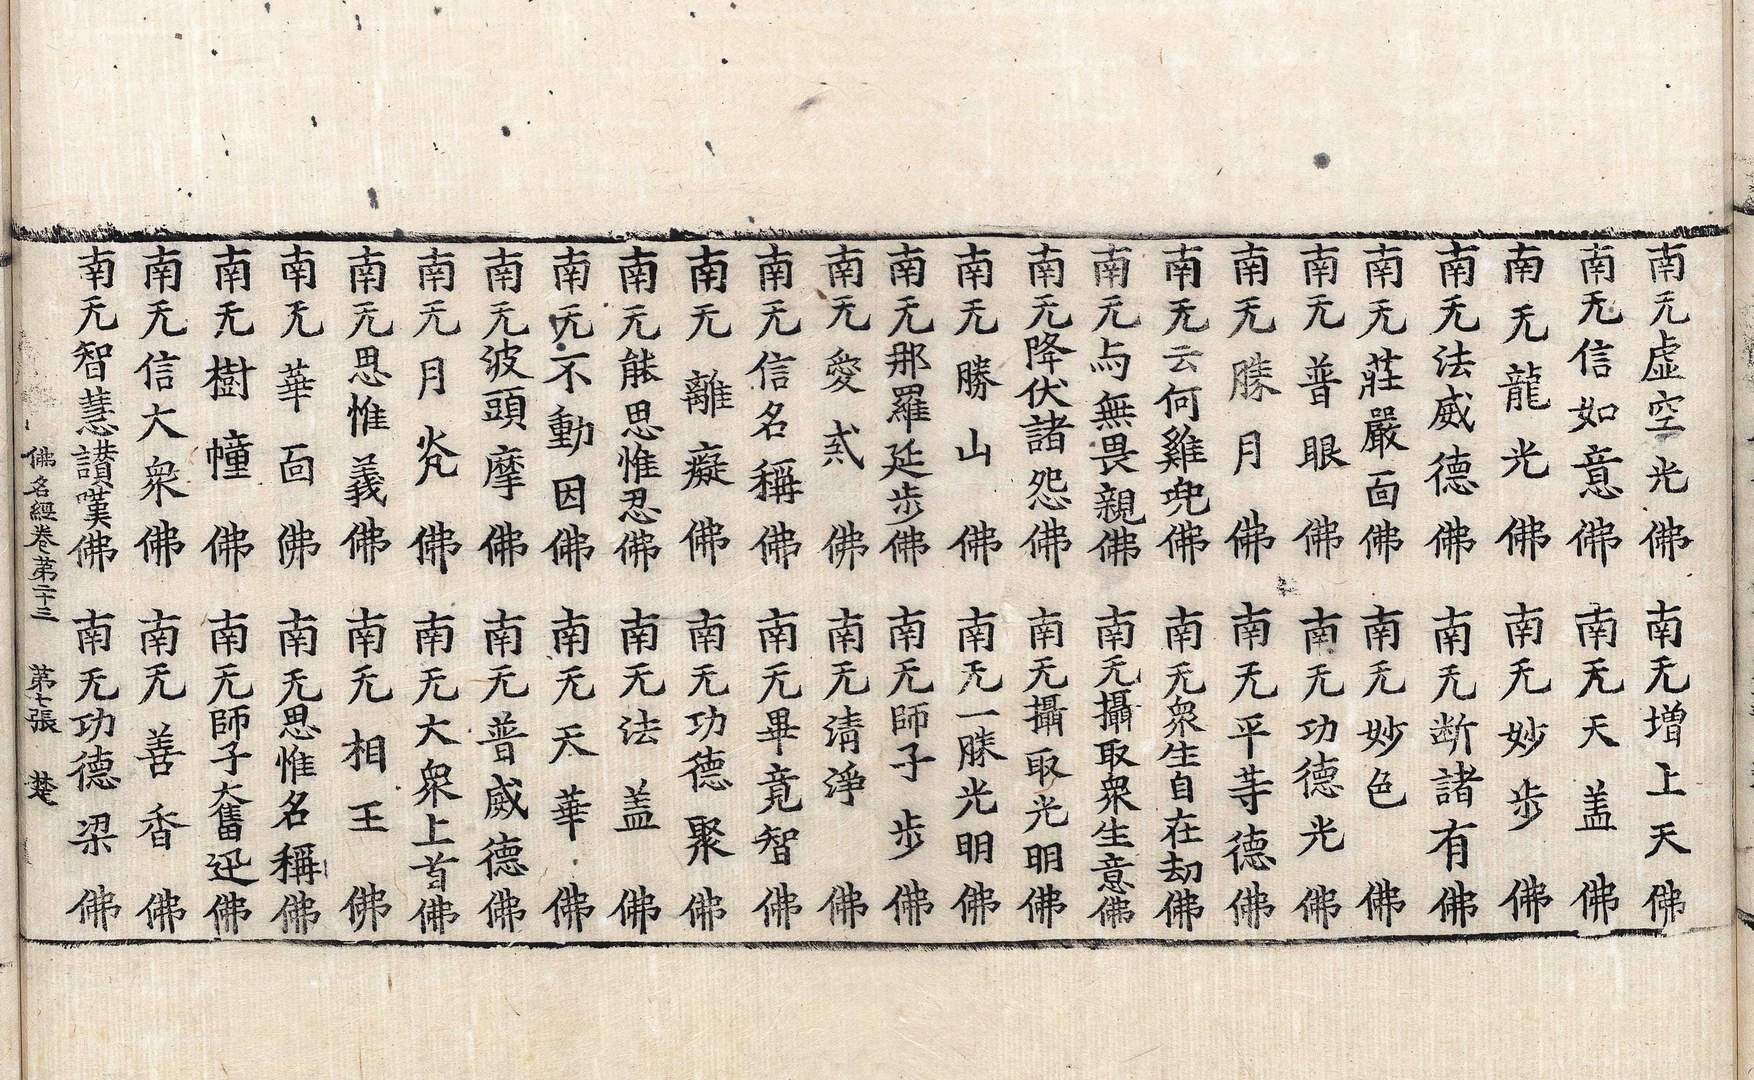 南无虛空光佛　南无增上天佛
南无信如意佛　南无天盖佛
南无龍光佛　南无妙步佛
南无法威德佛　南无断諸有佛
南无莊嚴面佛　南无妙色佛
南无普眼佛　南无功德光佛
南无勝月佛　南无平等德佛
南无云何雞兜佛　南无衆生自在劫佛
南无与無畏親佛　南无攝取衆生意佛
南无降伏諸怨佛　南无攝取光明佛
南无勝山佛　南无一勝光明佛
南无那羅延步佛　南无師子步佛
南无愛忒佛　南无清淨佛
南无信名稱佛　南无畢竟智佛
南无離癡佛　南无功德聚佛
南无能思惟忍佛　南无法盖佛
南无不動因佛　南无天華佛
南无波頭摩佛　南无普威德佛
南无月炎佛　南无大衆上首佛
南无思惟義佛　南无相王佛
南无華面佛　南无思惟名稱佛
南无樹幢佛　南无師子大奮迅佛
南无信大衆佛　南无善香佛
南无智慧讃嘆佛　南无功德梁佛
佛名經卷第二十三　第七張　楚